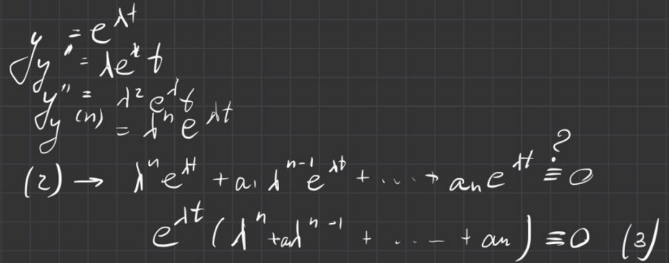 y = e^{λt}
y' = λe^{λt}
y'' = λ² e^{λt}
y^{(n)} = λ^n e^{λt}
(2) → λ^n e^{λt} + a₁ λ^{n-1} e^{λt} + .... + a_n e^{λt} ≡? 0
e^{λt} (λ^n + a₁λ^{n-1} + ..... + a_n) ≡ 0 (3)